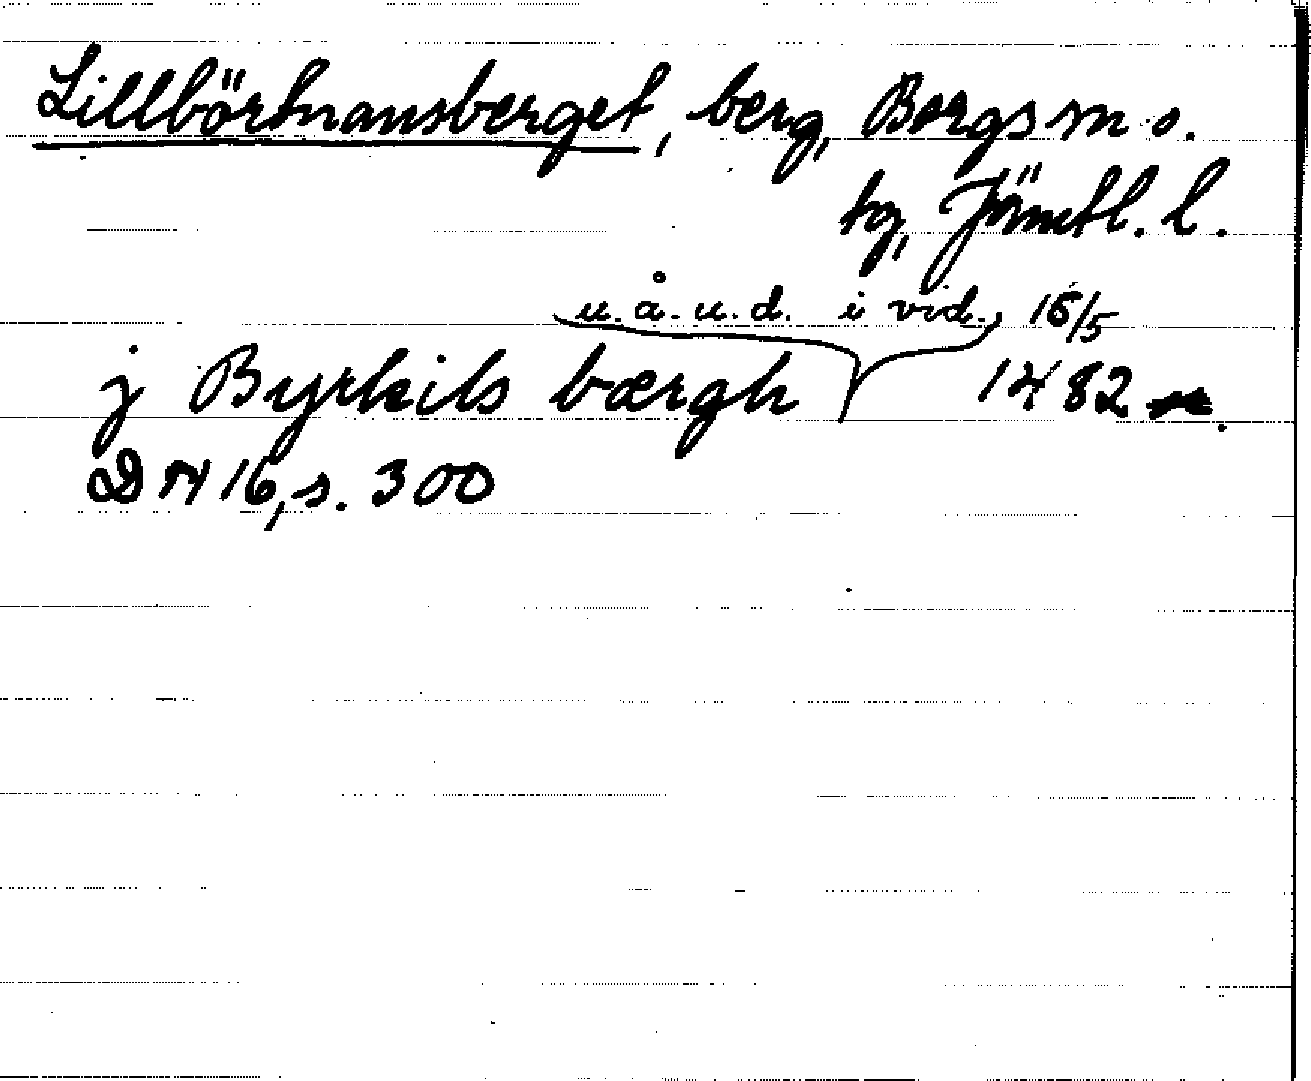 Lillbörtnansberget, berg, Bergs sn o.
tg, Jämtl. l.
u. å. u. d. i vid. 15/5
j Byrkils bærgh 1482
DN 16, s. 300